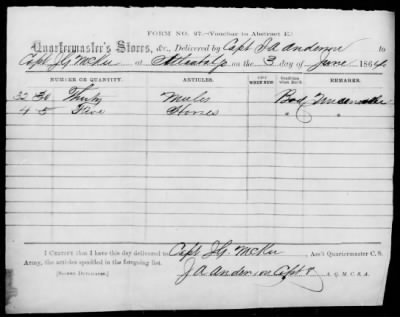 FORM No. 27.—(Voucher to Abstract E.)
Quartermaster's Stores, &c., Delivered by Capt J A Anderson to
Capt J G McKee at Atlanta Ga on the 3 day of June 1864
NUMBER OR QUANTITY. ARTICLES. COST WHEN NEW. CONDITION WHEN DELIVERED. REMARKS.
32 30 Thirty Mules Bad
4 5 Five Horses " "
I CERTIFY that I have this day delivered to Capt J. G. McKee, Ass't Quartermaster C. S.
Army, the articles specified in the foregoing list.
[SIGNED DUPLICATES.] J A Anderson Capt & A. Q. M. C. S. A.